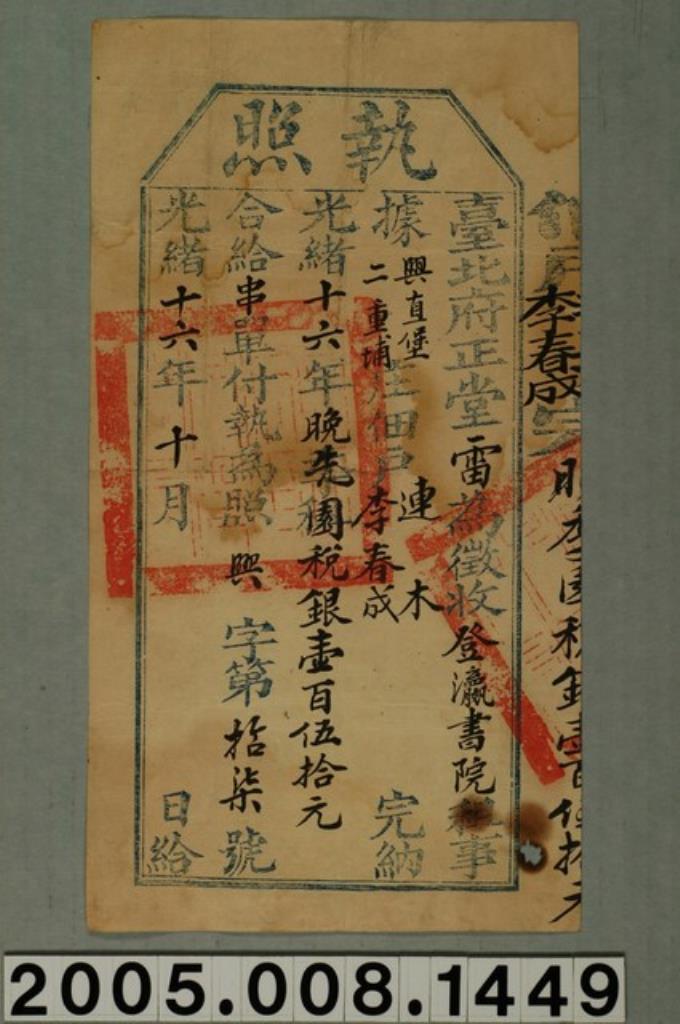 執照
李春成
晚季園稅銀壹百伍拾元
臺北府正堂雷為徵收登瀛書院租事
據興直堡二重埔庄佃戶連木李春成完納
光緒十六年晚冬園稅銀壹百伍拾元
合給串單付執為照興字第拾柒號
光緒十六年十月日給
2005.008.1449